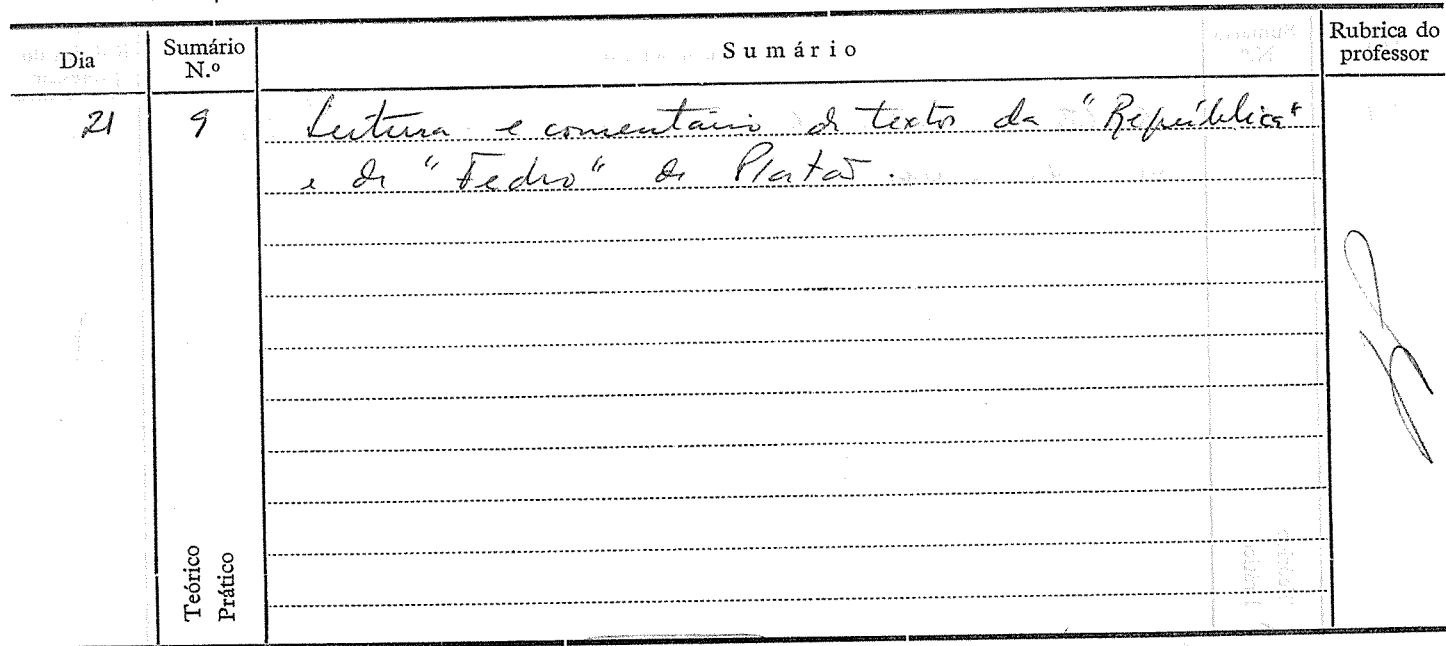 Dia
Sumário
N.º
Sumário
Rubrica do
professor
21
9
Leitura e comentário de textos da "República"
e do "Fedro" de Platão.
Teórico
Prático